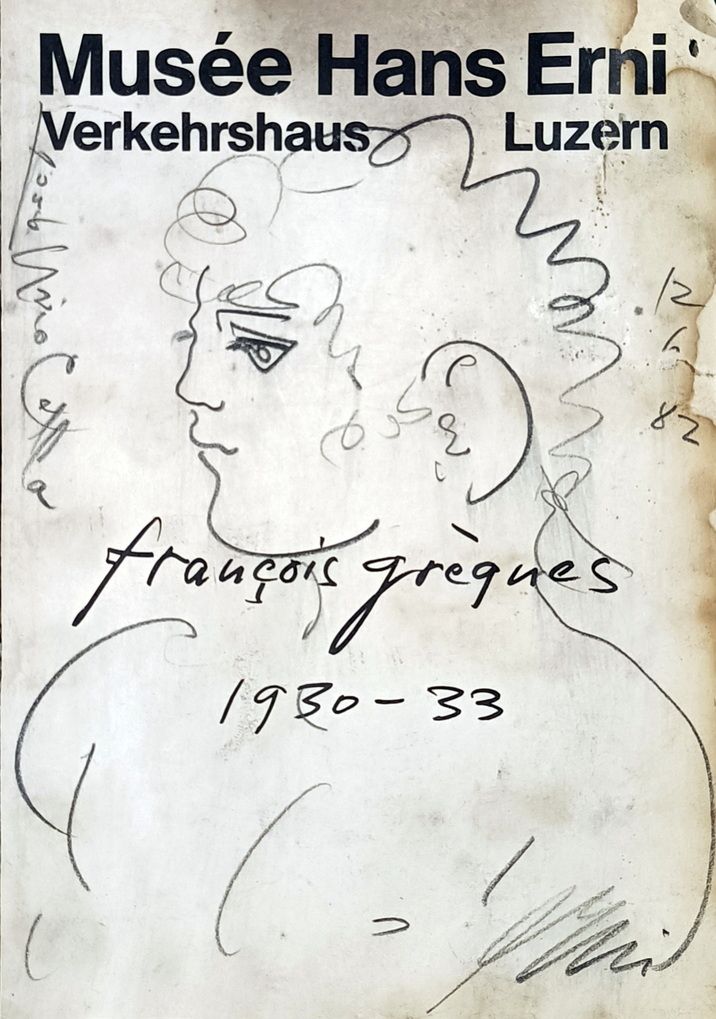 Musée Hans Erni
Verkehrshaus Luzern
françois grèques
1930-33
12
6
82
Erni